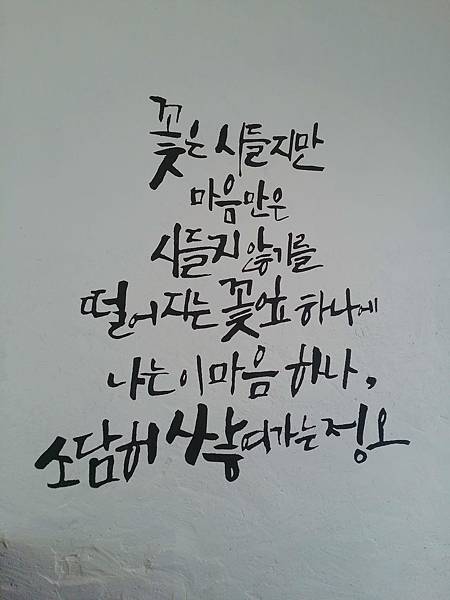 꽃은 시들지만
마음만은
시들지 않기를
떨어지는 꽃잎 하나에
나는 이 마음 하나,
소담히 가는 정오